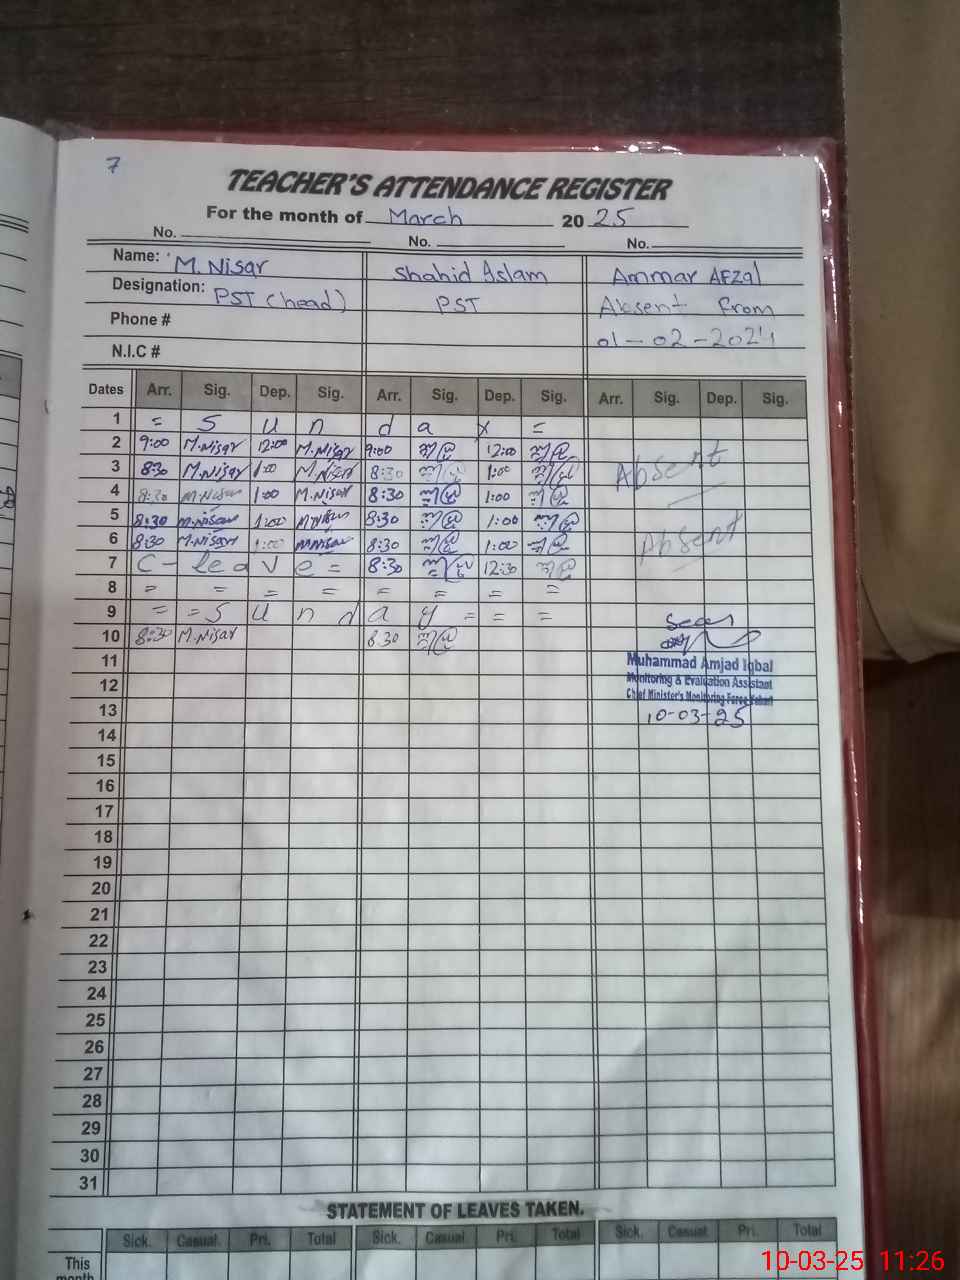 7
TEACHER'S ATTENDANCE REGISTER
For the month of March 2025
No. No. No.
Name: M. Nisar Shahid Islam Ammar Afzal
Designation: PST (head) PST Absent From
Phone # 01-02-2024
N.I.C #
Dates Arr. Sig. Dep. Sig. Arr. Sig. Dep. Sig. Arr. Sig. Dep. Sig.
1 = S u n d a y =
2 9:00 M.Nisar 12:00 M.Nisar 9:00 12:00
3 8:30 M.Nisar 1:00 M.Nisar 8:30 1:00 Absent
4 8:30 M.Nisar 1:00 M.Nisar 8:30 1:00
5 8:30 M.Nisar 1:00 M.Nisar 8:30 1:00
6 8:30 M.Nisar 1:00 M.Nisar 8:30 1:00 Absent
7 C - leave = 8:30 12:30
8 = = = = = = = =
9 = = S u n d a y = = =
10 8:30 M.Nisar 8.30
Seen
11 Muhammad Amjad Iqbal
12 Monitoring & Evaluation Assistant
Chief Minister's Monitoring Force
13 10-03-25
14
15
16
17
18
19
20
21
22
23
24
25
26
27
28
29
30
31
STATEMENT OF LEAVES TAKEN.
Sick. Casual. Pri. Total Sick. Casual. Pri. Total Sick. Casual. Pri. Total
This
month
10-03-25 11:26